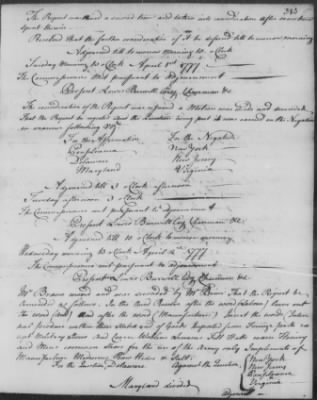 343
The Report was read a second time and taken into consideration After some time
spent therein
Resolved that the further consideration of it be deferred till to morrow morning
Adjourned till to morrow morning 10 oClock
Tuesday Morning 10 oClock April 1st 1777
The Commissioners met pursuant to adjournment
Present Lewis Burwell Esqr. Chairman &c
The consideration of the Report was resumed a Motion was made and seconded
That the Report be rejected and the Question being put it was carried in the Negative
in manner following Viz
In the Affirmative
Pensylvania
Delaware
Maryland
In the Negative
New York
New Jersey
Virginia
Adjourned till 3 oClock afternoon
Tuesday afternoon 3 oClock
The Commissioners met pursuant to adjournment
Present Lewis Burwell Esqr. Chairman &c
Adjourned till 10 oClock to morrow morning
Wednesday morning 10 oClock April 2d 1777
The Commissioners met pursuant to adjournment
Present Lewis Burwell Esqr Chairman &c
Mr Brown moved and was seconded by Mr That the Report be
amended as follows, In the third after the word (Labour) leave out
the word (and) And after the word (Manufactures) Insert the words
produce within these States and of Goods Imported from Foreign parts ex
cept Military Stores and Linens fit for
and Mens common Shoes for the use of the Army only
Manufacturage Shoes Hides &
For the Question Delaware
Against the Question
New York
New Jersey
Pensylvania
Virginia
Maryland divided